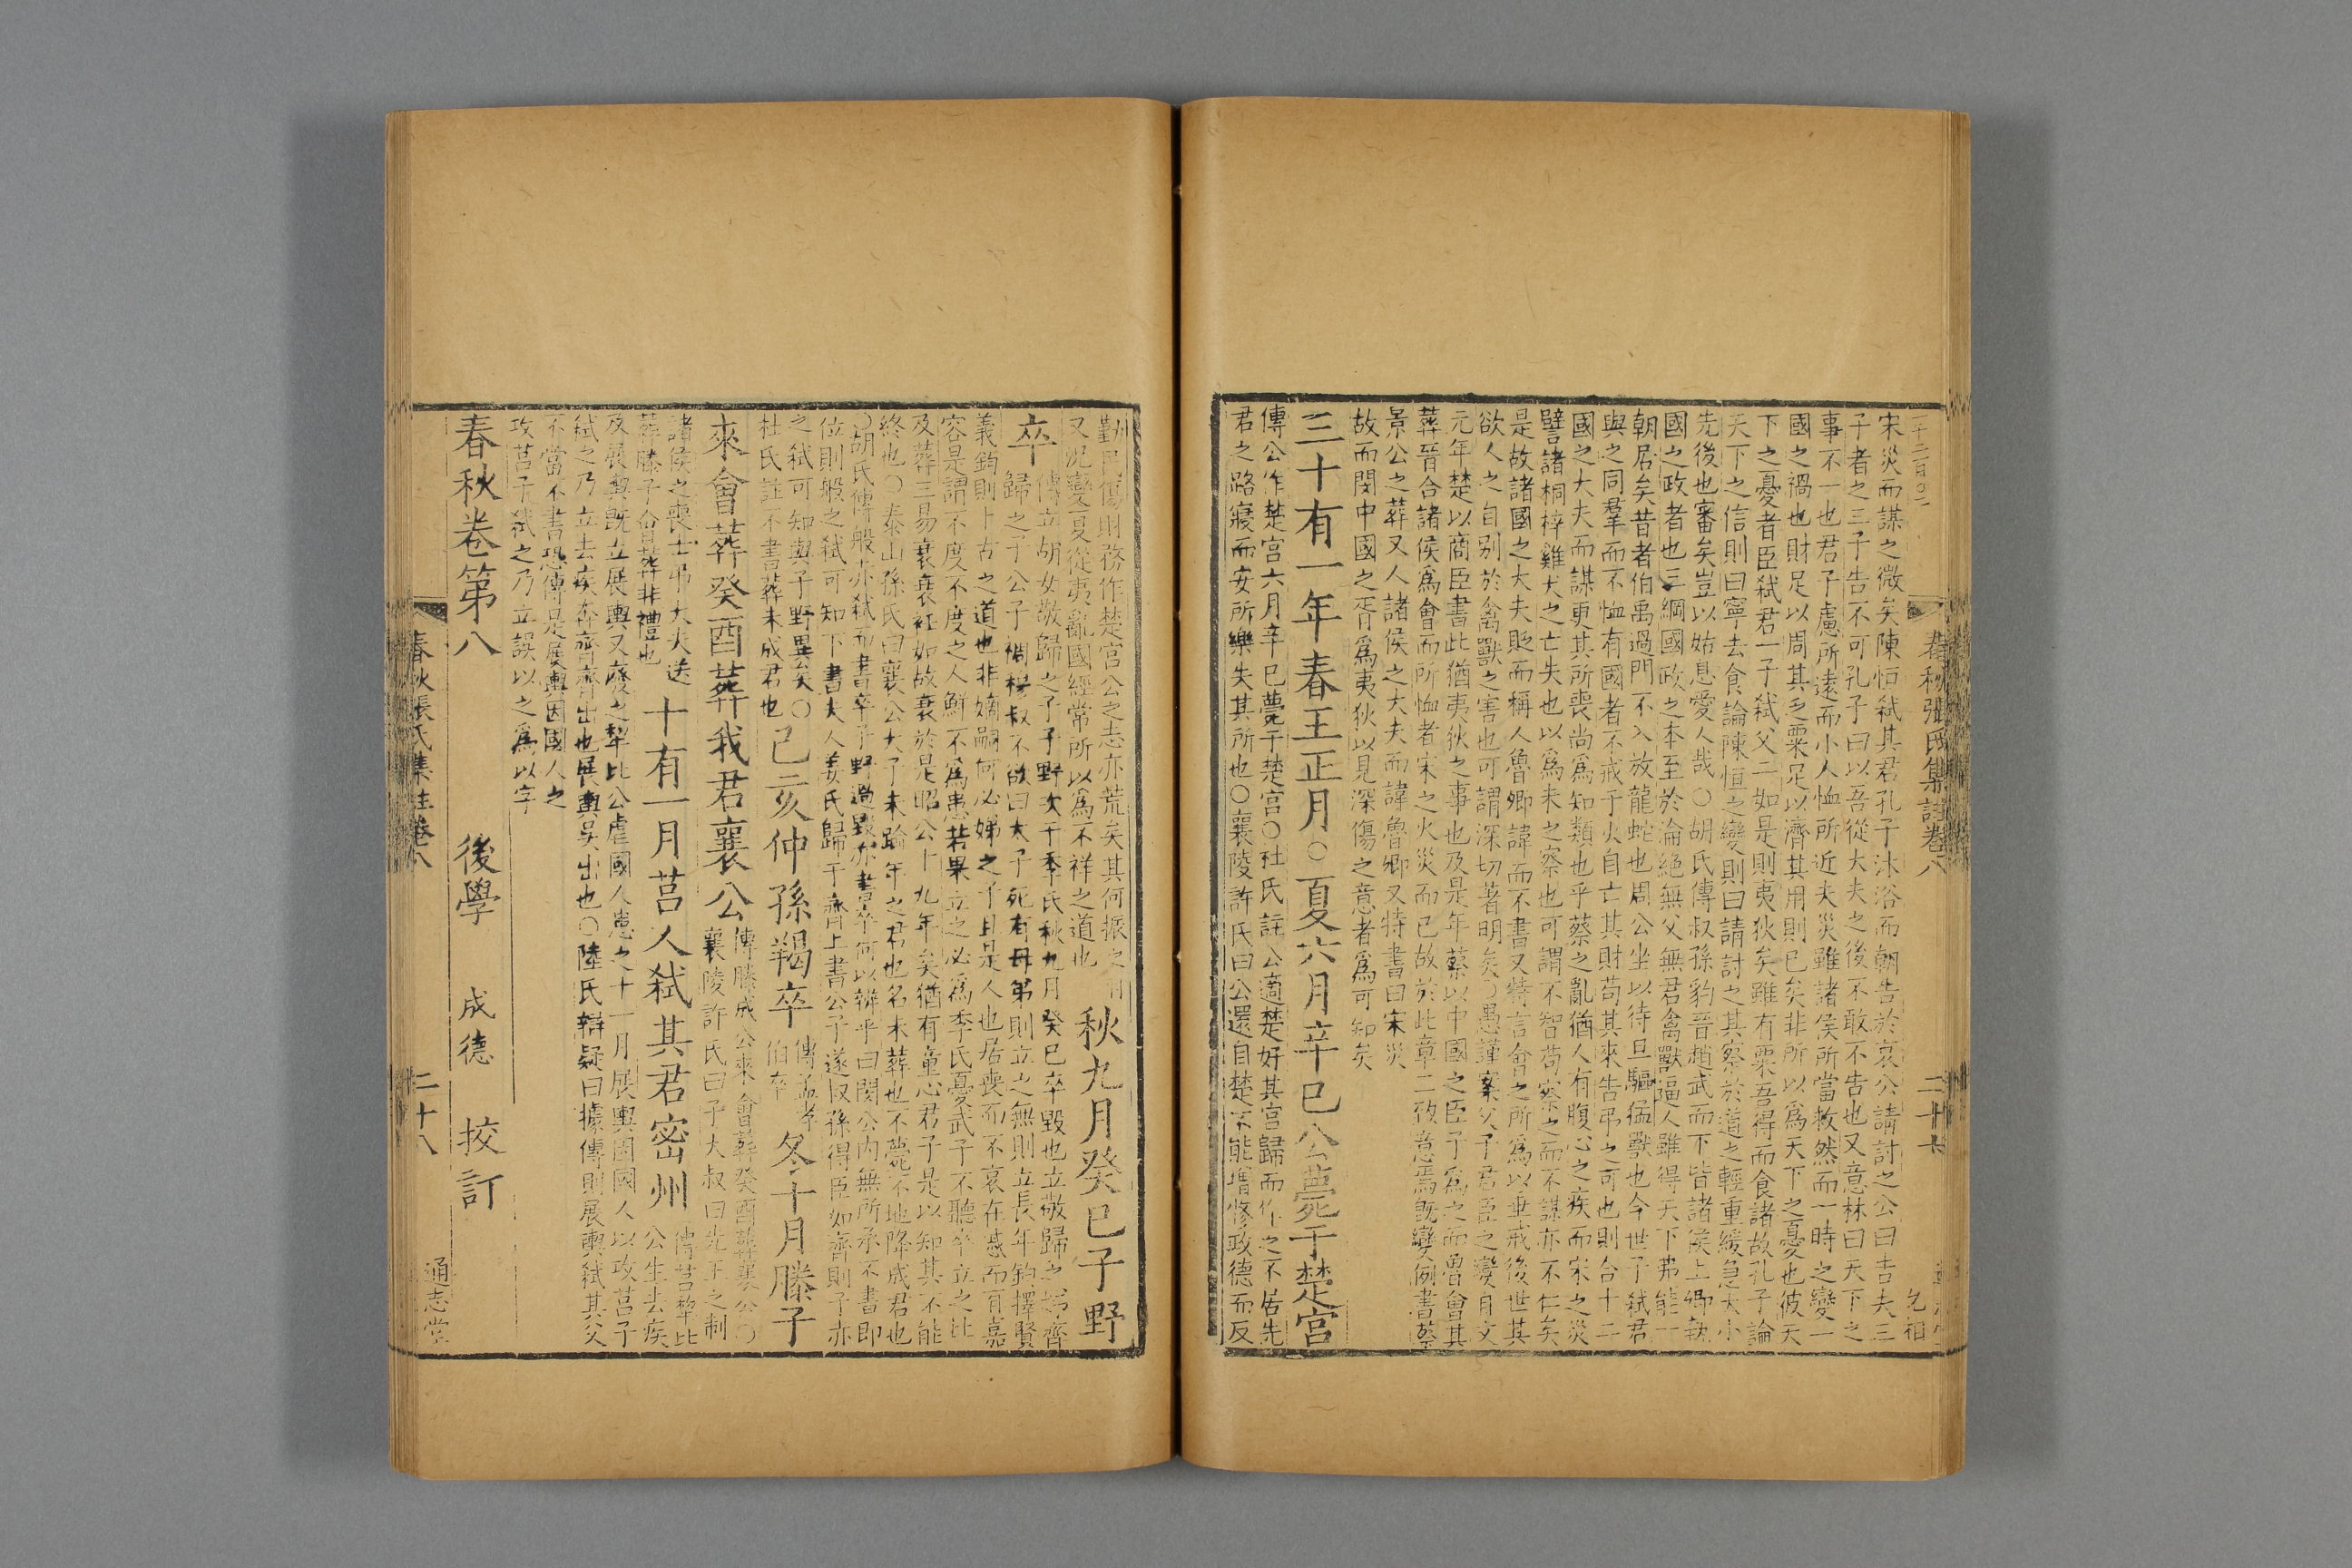 宋災而謀之微矣陳恒弑其君孔子沐浴而朝告於哀公請討之公曰告夫三
子者之三子告不可孔子曰以吾從大夫之後不敢不告也又意林曰天下之
事不一也君子慮所遠而小人恤所近夫災雖諸侯所當救然而一時之變一
國之禍也財足以周其乏粟足以濟其用則已矣非所以爲天下之憂也彼天
下之憂者臣弑君一子弑父二如是則夷狄矣雖有粟吾得而食諸故孔子論
天下之信則曰寧去食論陳恒之變則曰請討之其察於道之輕重緩急大小
先後也審矣豈以姑息愛人哉○胡氏傳叔孫豹晉趙武而下皆諸侯上卿執
國之政者也三綱國政之本至於淪絶無父無君禽獸逼人雖得天下弗能一
朝居矣昔者伯禹過門不入放龍蛇也周公坐以待旦驅猛獸也今世子弑君
與之同羣而不恤有國者不戒于火自亡其財苟其來告弔之可也則合十二
國之大夫而謀更其所喪尚爲知類也乎蔡之亂猶人有腹心之疾而宋之災
譬諸桐梓雞犬之亡失也以爲未之察也可謂不智苟察之而不謀亦不仁矣
是故諸國之大夫貶而稱人魯卿諱而不書又特言會之所爲以垂戒後世其
欲人之自别於禽獸之害也可謂深切著明矣○愚謹案父子君臣之變自文
元年楚以商臣書此猶夷狄之事也及是年蔡以中國之臣子爲之而魯會其
葬晉合諸侯爲會而所恤者宋之火災而已故於此章二致意焉旣變例書蔡
景公之葬又人諸侯之大夫而諱魯卿又特書曰宋災
故而閔中國之胥爲夷狄以見深傷之意者爲可知矣
三十有一年春王正月○夏六月辛巳公薨于楚宮
傳公作楚宮六月辛巳薨于楚宮○杜氏註公適楚好其宮歸而作之不居先
君之路寢而安所樂失其所也○襄陵許氏曰公還自楚不能增修政德而反
春秋張氏集註卷八
二十七
勤民傷財務作楚宮公之志亦荒矣其何振之有 秋九月癸巳子野
又況變夏從夷亂國經常所以爲不祥之道也
卒 傳立胡女敬歸之子子野次于季氏秋九月癸巳卒毀也立敬歸之娣齊
歸之子公子裯穆叔不欲曰太子死有母弟則立之無則立長年鈞擇賢
義鈞則卜古之道也非嫡嗣何必娣之子且是人也居喪而不哀在慼而有嘉
容是謂不度不度之人鮮不爲患若果立之必爲季氏憂武子不聽卒立之比
及葬三易衰衰衽如故衰於是昭公十九年矣猶有童心君子是以知其不能
終也○泰山孫氏曰襄公太子未踰年之君也名未葬也不薨不地降成君也
○胡氏傳般亦弑而書卒子野過毀亦書卒何以辨乎曰閔公内無所承不書即
位則般之弑可知下書夫人姜氏歸于齊上書公子遂叔孫得臣如齊則子赤
之弑可知與子野異矣○ 己亥仲孫羯卒 傳孟孝 冬十月滕子
杜氏註不書葬未成君也 伯卒
來會葬癸酉葬我君襄公 傳滕成公來會葬癸酉葬襄公○
襄陵許氏曰子大叔曰先王之制
諸侯之喪士弔大夫送 十有一月莒人弑其君密州 傳莒犂比
葬滕子會葬非禮也 公生去疾
及展輿旣立展輿又廢之犂比公虐國人患之十一月展輿因國人以攻莒子
弑之乃立去疾奔齊齊出也展輿吳出也○陸氏辯疑曰據傳則展輿弑其父
不當不書恐傳是展輿因國人之
攻莒子弑之乃立誤以之爲以字
春秋卷第八
後學 成德 挍訂
春秋張氏集註卷八
二十八
通志堂